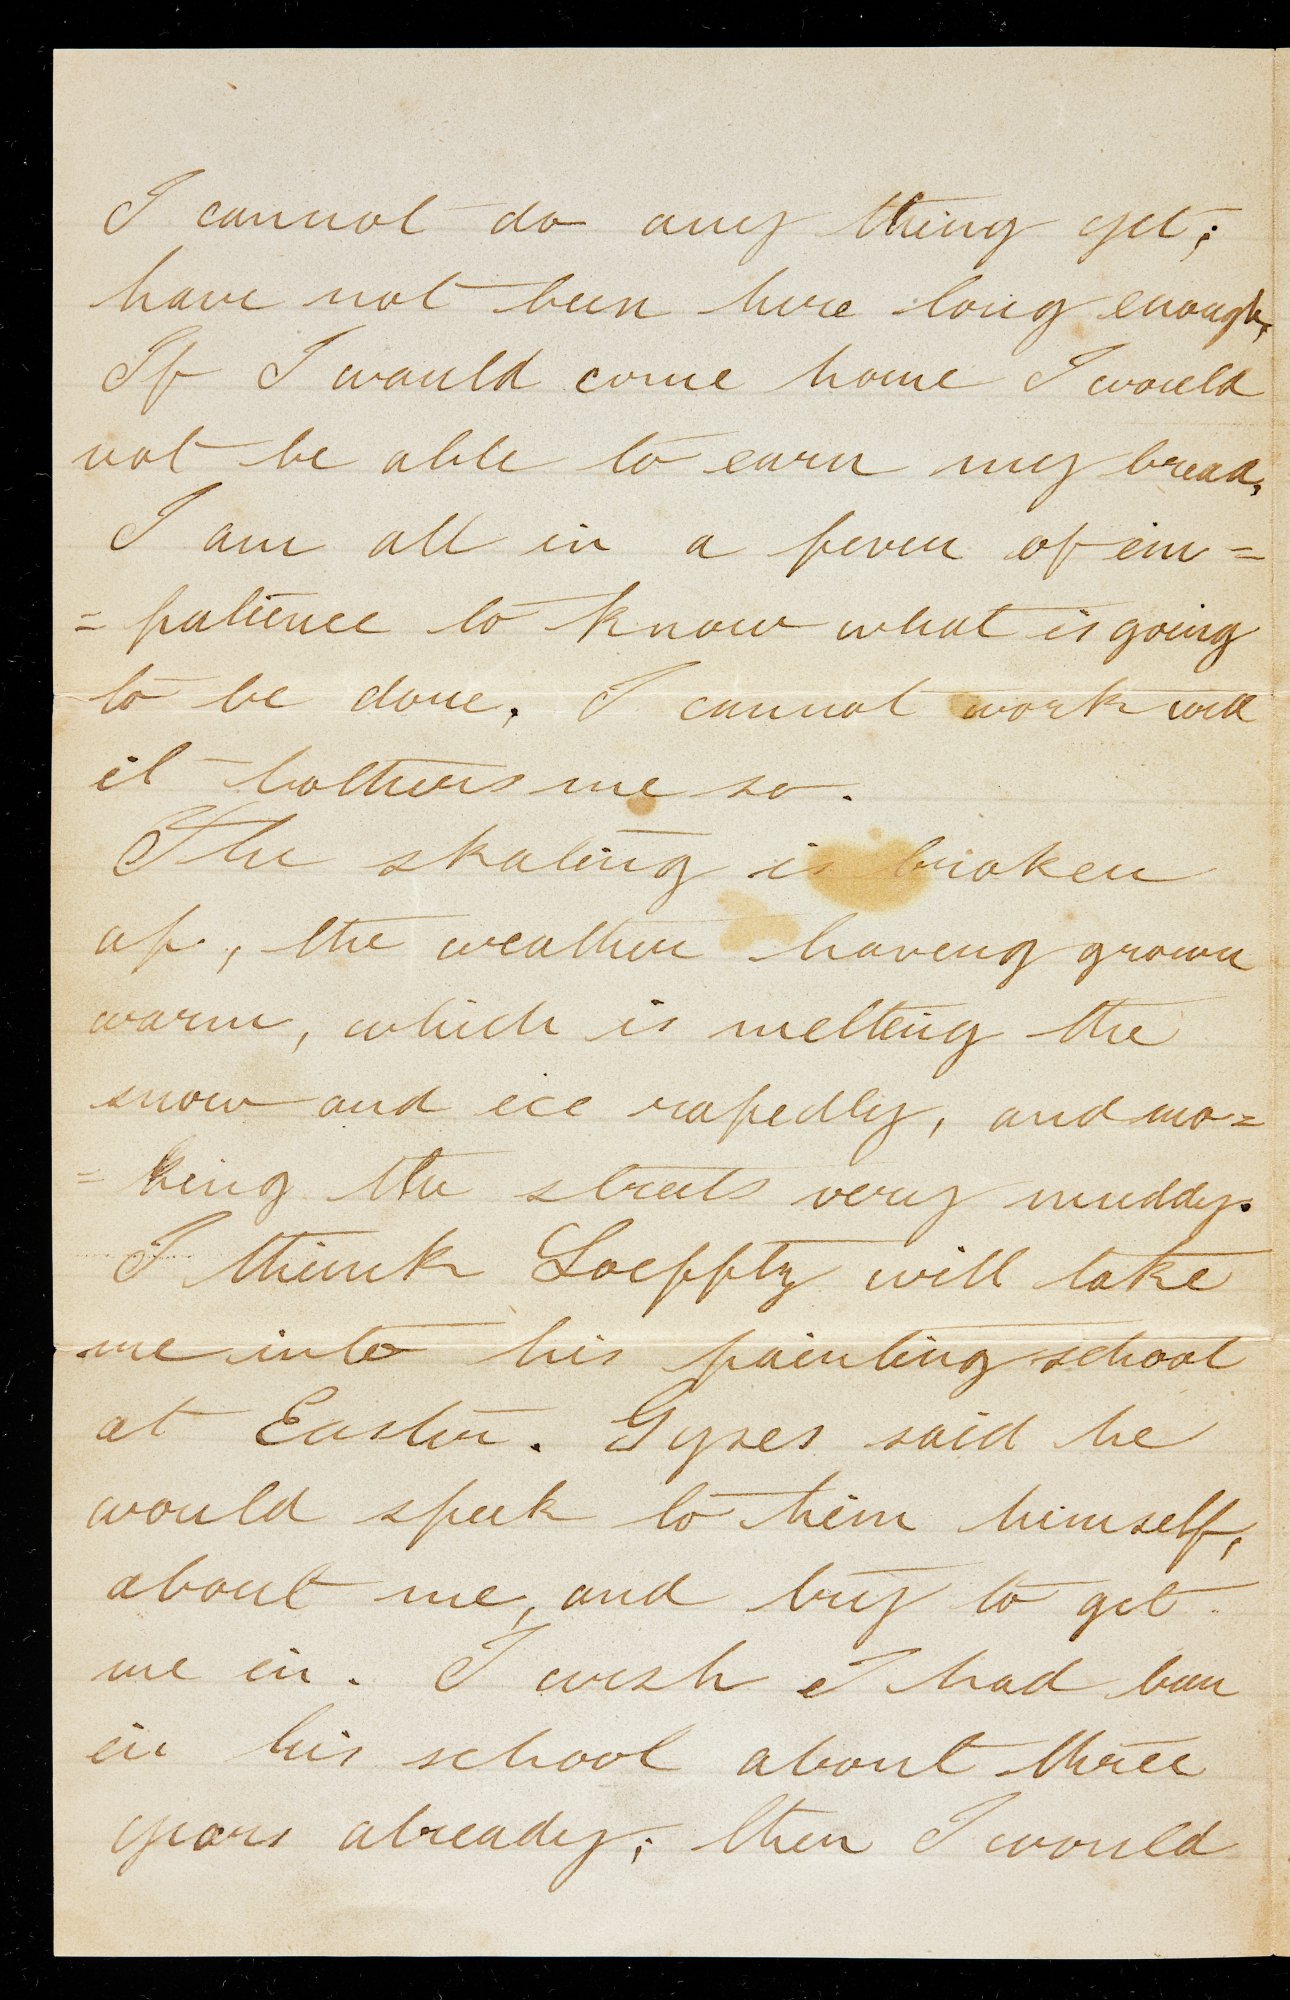 I cannot do any thing yet;
have not been here long enough,
If I would come home I would
not be able to earn my bread,
I am all in a fever of im=
=patience to know what is going
to be done. I cannot work well
it bothers me so.
The skating is broken
up, the weather having grown
warm, which is melting the
snow and ice rapedly, and ma=
=king the streets very muddy.
I think Loefftz will take
me into his painting school
at Easter. Gyses said he
would speek to him himself,
about me, and try to get
me in. I wish I had been
in his school about three
years already; then I would